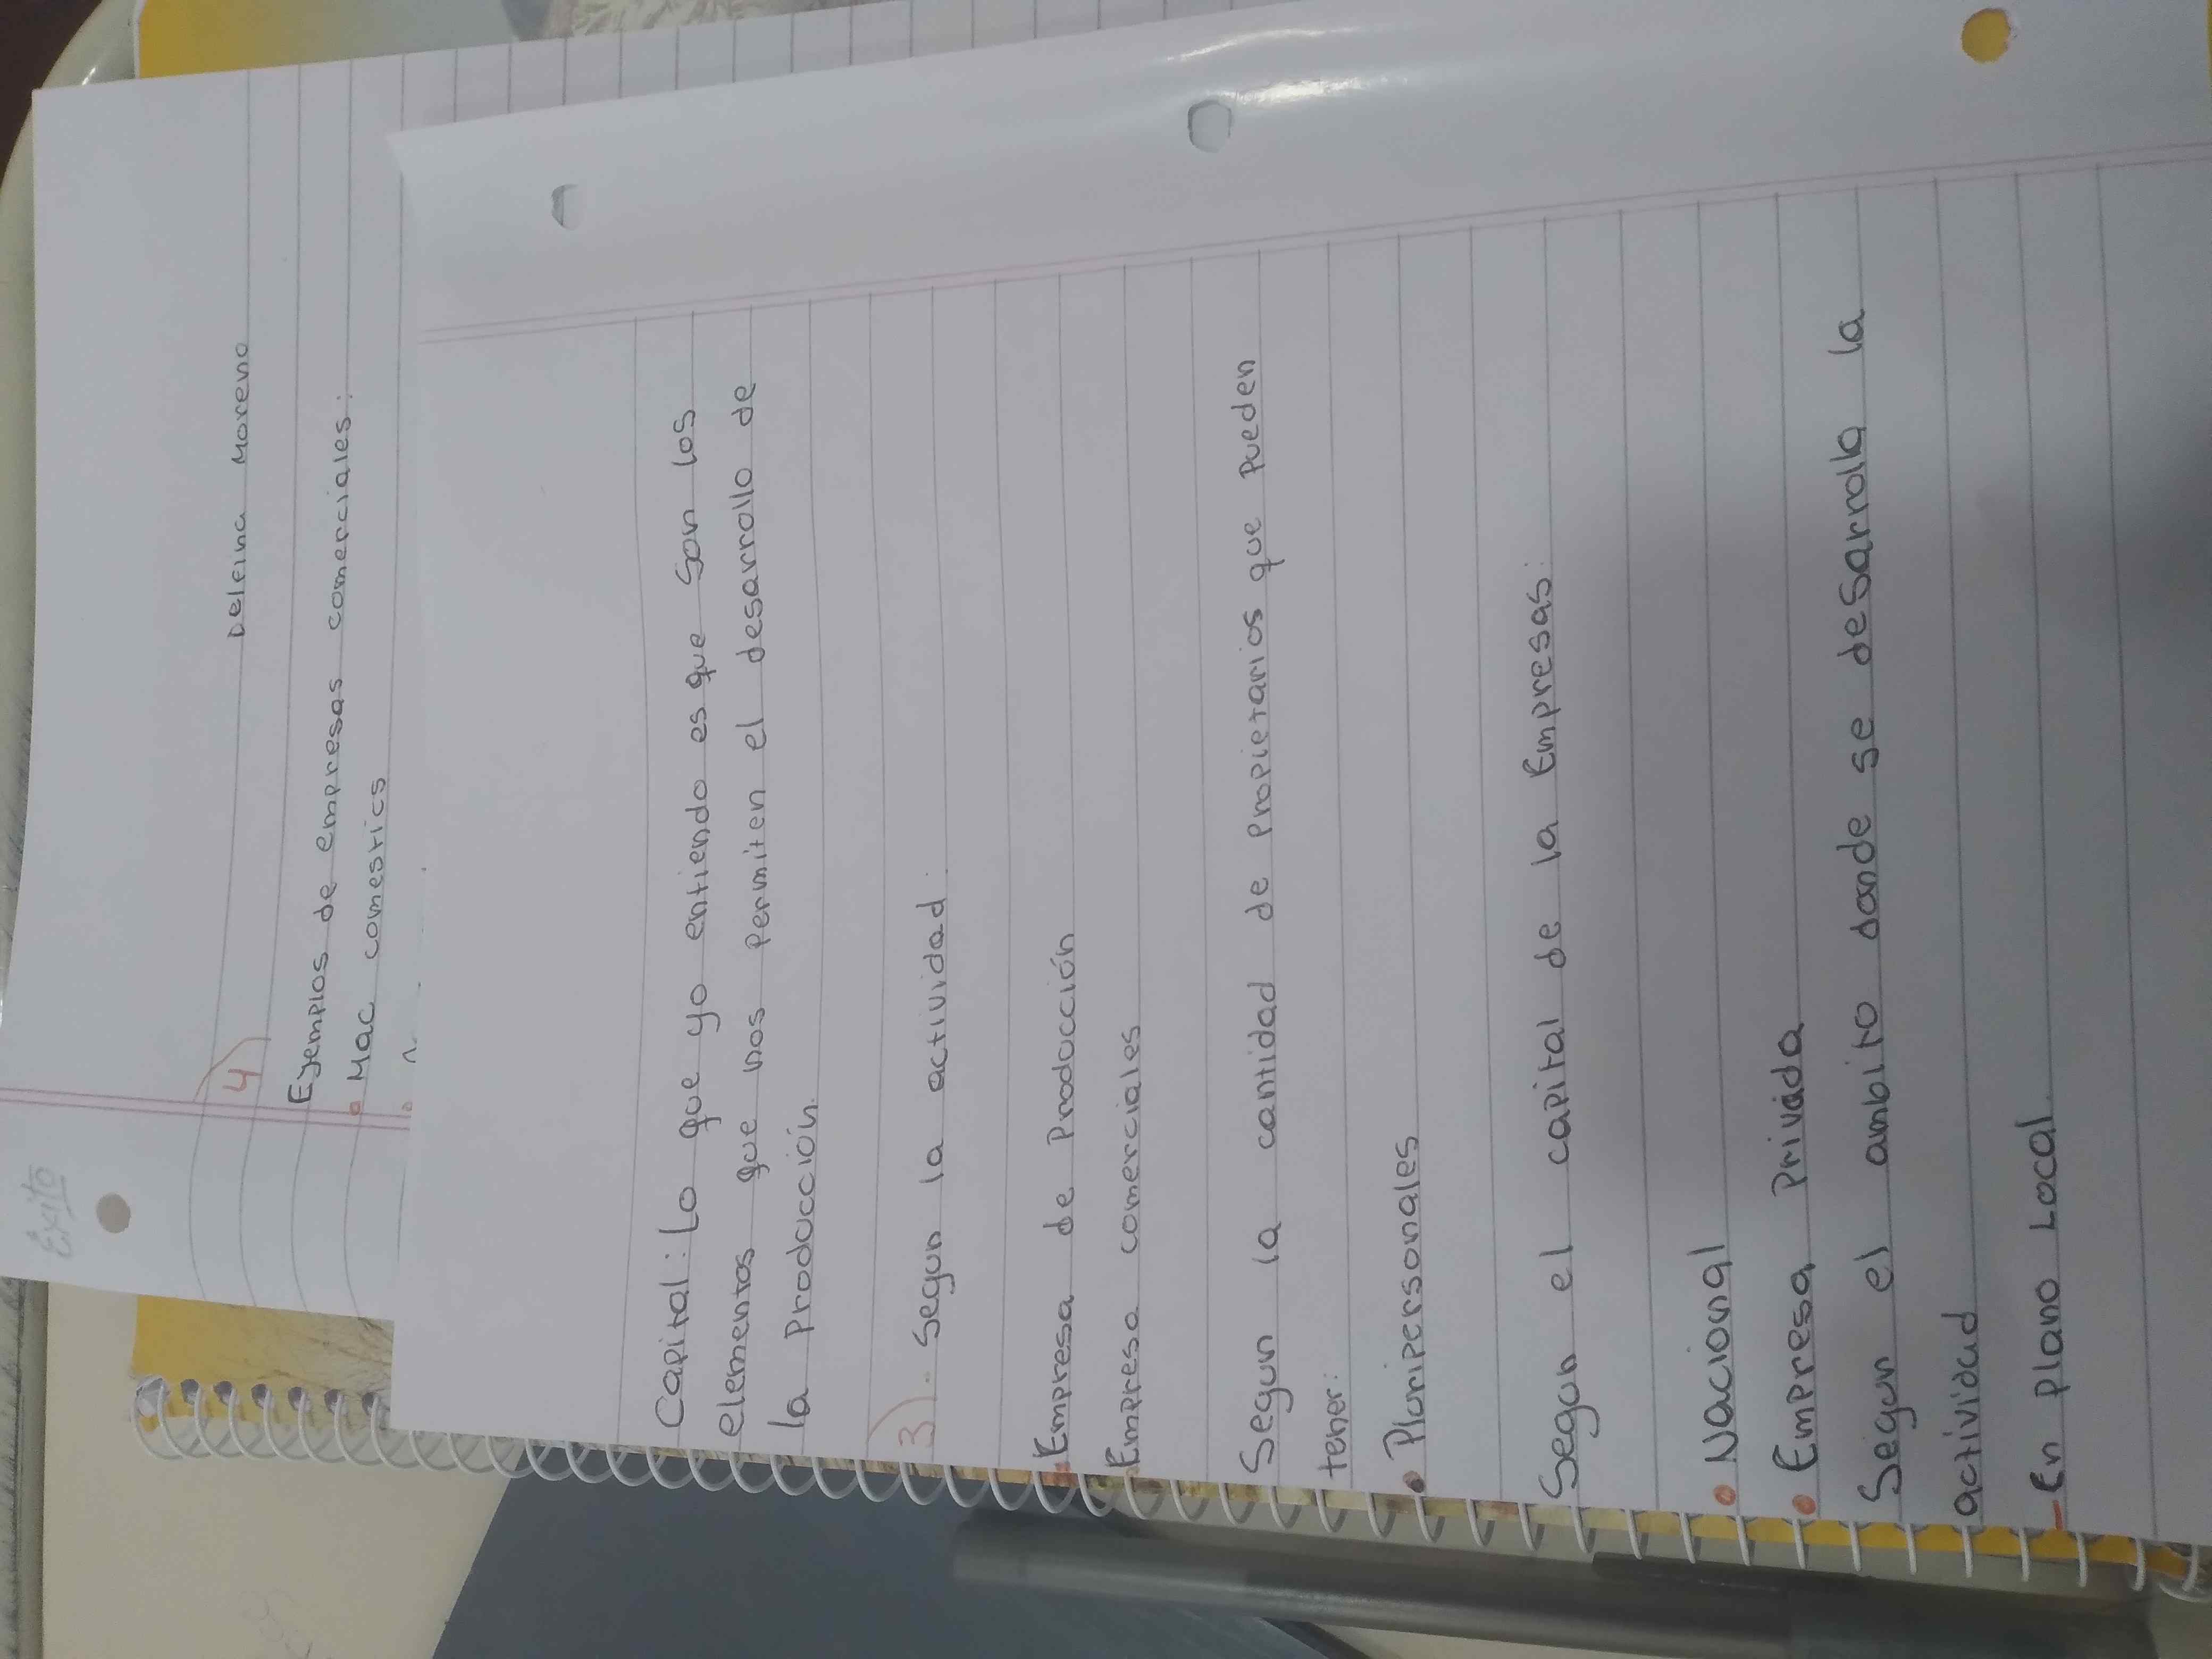 Exito
Delfina Moreno
4)
Eyemplos de empresas comerciales:
• Mac comestics
Capital: Lo que yo entiendo es que son los
elementos que nos permiten el desarrollo de
la Producción.
3). Segun la actividad.
- Empresa de Producción
- Empresa comerciales
Segun la cantidad de Propietarios que pueden
tener:
• Pluripersonales
Segun el capital de la Empresas:
• Nacional
• Empresa Privada
Segun el ambito donde se desarrolla la
actividad
- En plano Local.